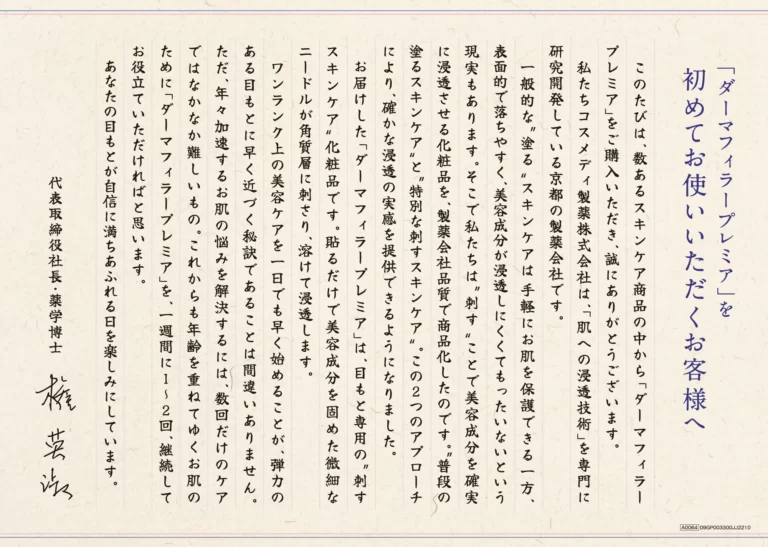 「ダーマフィラープレミア」を
初めてお使いいただくお客様へ
このたびは、数あるスキンケア商品の中から「ダーマフィラー
プレミア」をご購入いただき、誠にありがとうございます。
私たちコスメディ製薬株式会社は、「肌への浸透技術」を専門に
研究開発している京都の製薬会社です。
一般的な〝塗る〟スキンケアは手軽にお肌を保護できる一方、
表面的で落ちやすく、美容成分が浸透しにくくてもったいないという
現実もあります。そこで私たちは〝刺す〟ことで美容成分を確実
に浸透させる化粧品を、製薬会社品質で商品化したのです。〝普段の
塗るスキンケア〟と〝特別な刺すスキンケア〟。この2つのアプローチ
により、確かな浸透の実感を提供できるようになりました。
お届けした「ダーマフィラープレミア」は、目もと専用の〝刺す
スキンケア〟化粧品です。貼るだけで美容成分を固めた微細な
ニードルが角質層に刺さり、溶けて浸透します。
ワンランク上の美容ケアを一日でも早く始めることが、弾力の
ある目もとに早く近づく秘訣であることは間違いありません。
ただ、年々加速するお肌の悩みを解決するには、数回だけのケア
ではなかなか難しいもの。これからも年齢を重ねてゆくお肌の
ために「ダーマフィラープレミア」を、一週間に1〜2回、継続して
お役立ていただければと思います。
あなたの目もとが自信に満ちあふれる日を楽しみにしています。
代表取締役社長・薬学博士
権 英淑
A0064 09GP003300JJ2210